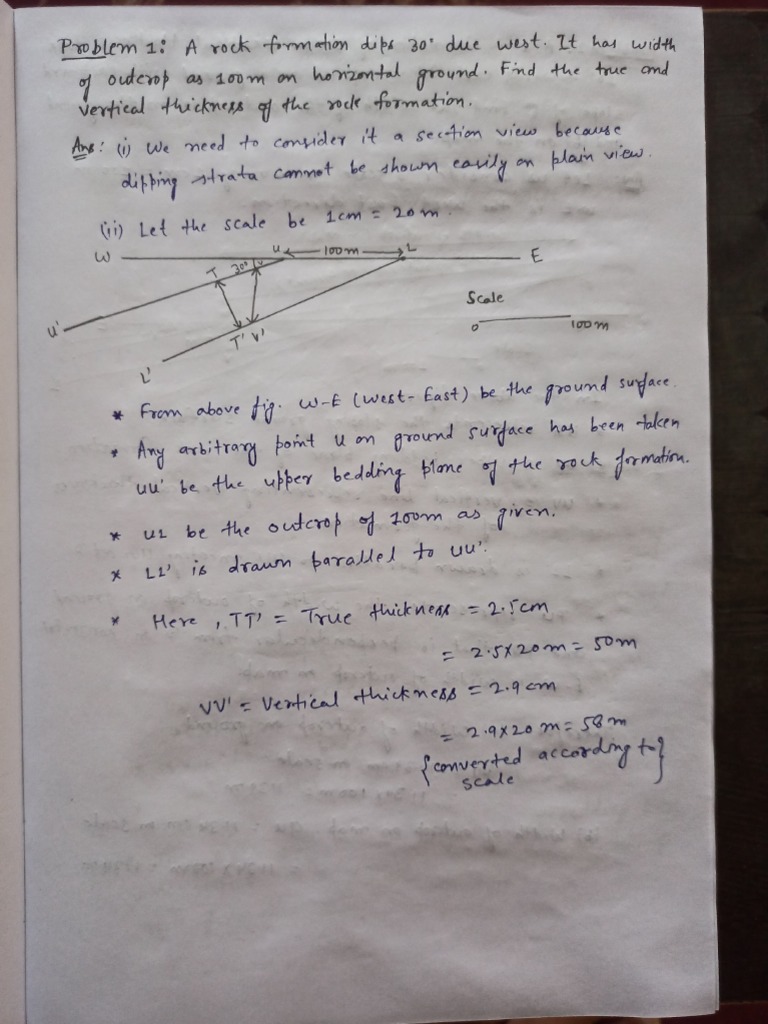 Problem 1: A rock formation dips 30° due west. It has width
of outcrop as 100m on horizontal ground. Find the true and
vertical thickness of the rock formation.
Ans: (i) We need to consider it a section view because
dipping strata cannot be shown easily on plain view.
(ii) Let the scale be 1cm = 20m.
W U 100m L E
T 30° V
Scale
U' 0 100m
T' V'
L'
* From above fig. W-E (West-East) be the ground surface.
* Any arbitrary point U on ground surface has been taken
UU' be the upper bedding plane of the rock formation.
* UL be the outcrop of 100m as given.
* LL' is drawn parallel to UU'.
* Here, TT' = True thickness = 2.5cm
= 2.5×20m = 50m
VV' = Vertical thickness = 2.9cm
= 2.9×20m = 58m
{converted according to}
scale